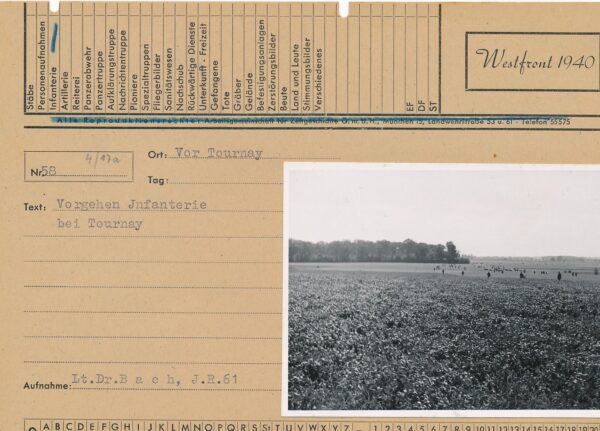 Stäbe
Personenaufnahmen
Infanterie
Artillerie
Reiterei
Panzerabwehr
Panzertruppe
Aufklärungstruppe
Nachrichtentruppe
Pioniere
Spezialtruppen
Fliegerbilder
Sanitätswesen
Nachschub
Rückwärtige Dienste
Unterkunft - Freizeit
Gefangene
Tote
Gräber
Gelände
Befestigungsanlagen
Zerstörungsbilder
Beute
Land und Leute
Stimmungsbilder
Verschiedenes
EF
DF
ST
Westfront 1940
Alle Reproduktionsrechte: Arbeitsgemeinschaft für Zeitgeschichte G. m. b. H., München 15, Landwehrstraße 53 u. 61 - Telefon 55575
4/17a
Nr. 58
Ort: Vor Tournay
Tag:
Text: Vorgehen Jnfanterie
bei Tournay
Aufnahme: Lt.Dr.B a c h, J.R.61
A B C D E F G H I J K L M N O P Q R S St T U V W X Y Z – 1 2 3 4 5 6 7 8 9 10 11 12 13 14 15 16 17 18 19 20